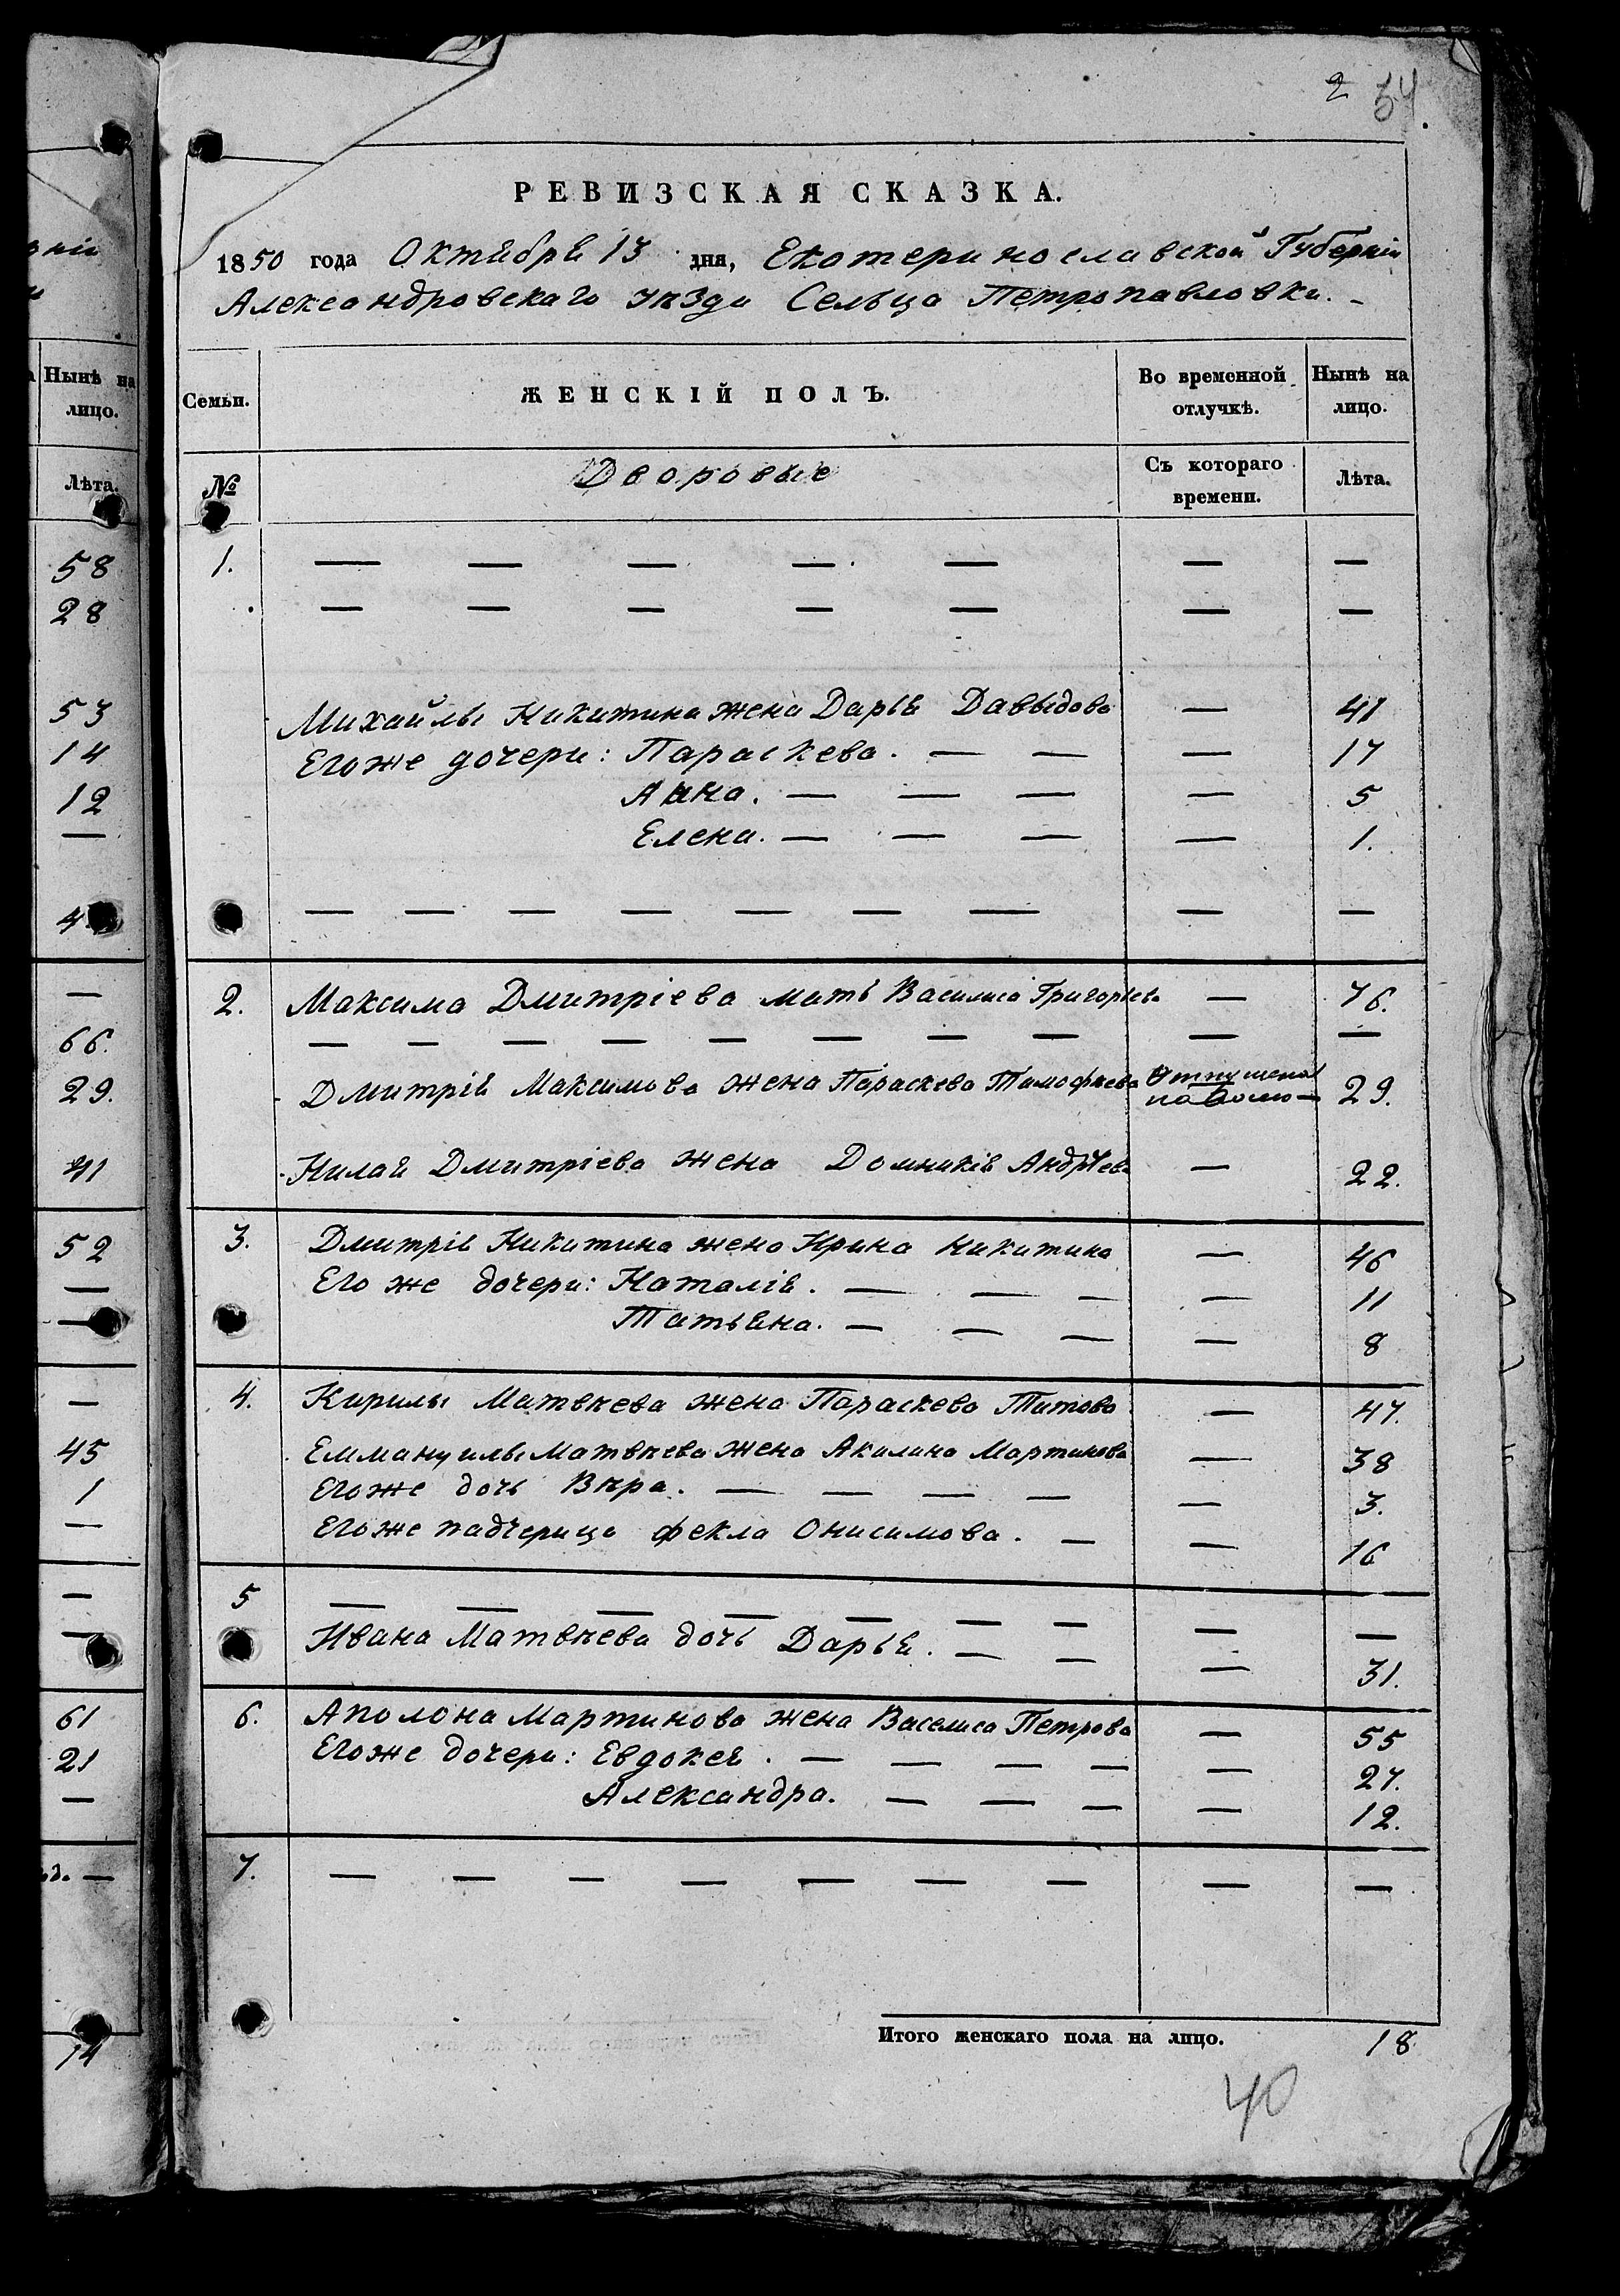 2 54.
РЕВИЗСКАЯ СКАЗКА.
1850 года Октября 13 дня, Екатеринославской Губерніи
Александровскаго уѣзда Сельца Петропавловки. –
Нынѣ на лицо.
Лѣта.
58
28
53
14
12
—
4
—
66.
29.
41
52
—
—
—
45
1
—
—
—
61
21
—
—
14
Семьи. ЖЕНСКІЙ ПОЛЪ. Во временной отлучкѣ. Нынѣ на лицо.
№ Дворовые Съ котораго времени. Лѣта.
1. — — — — — — —
— — — — — — —
Михайлы Никитина жена Дарья Давыдова — 41
Егоже дочери: Параскева. — — — 17
Анна. — — — — 5
Елена. — — — — 1.
— — — — — — — — —
2. Максима Дмитріева мать Василиса Григорьева — 76.
— — — — — — — — — —
Дмитрія Максимова жена Параскева Тимофѣева Отпущена на волю — 29.
Нилая Дмитріева жена Домникія Андрѣева — 22.
3. Дмитрія Никитина жена Ирина Никитина — 46
Его же дочери: Наталія. — — — — 11
Татьяна. — — — — 8
4. Кирилы Матвѣева жена Параскева Титова — 47.
Еммануилы Матвѣева жена Акилина Мартинова — 38
Егоже дочь Вѣра. — — — — — 3.
Егоже падчерица Фекла Онисимова. — — 16
5 — — — — — — — — —
Ивана Матвѣева дочь Дарья. — — — 31.
6. Аполона Мартинова жена Василиса Петрова — 55
Егоже дочери: Евдокея. — — — — — 27.
Александра. — — — — 12.
7. — — — — — — — — —
Итого женскаго пола на лицо. 18.
40